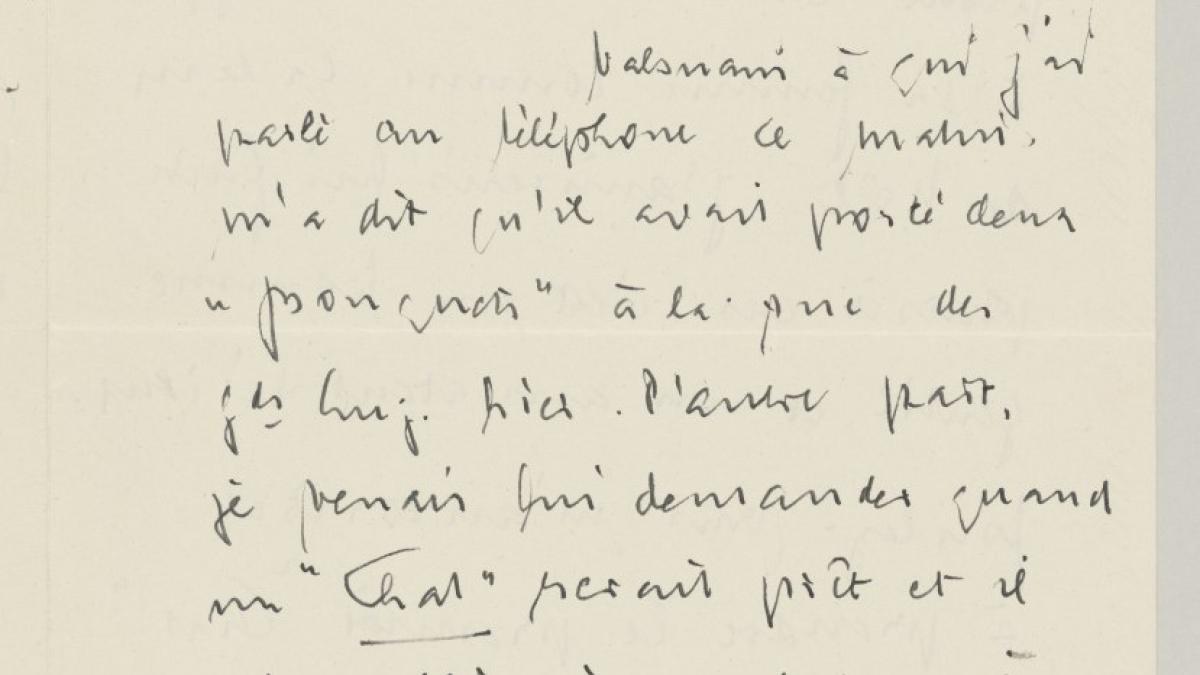 Valsuani à qui j'ai
parlé au téléphone ce matin.
m'a dit qu'il avait porté deux
"bouquets" à la rue des
gds Aug. hier. D'autre part,
je venais lui demander quand
un "Chat" serait prêt et il